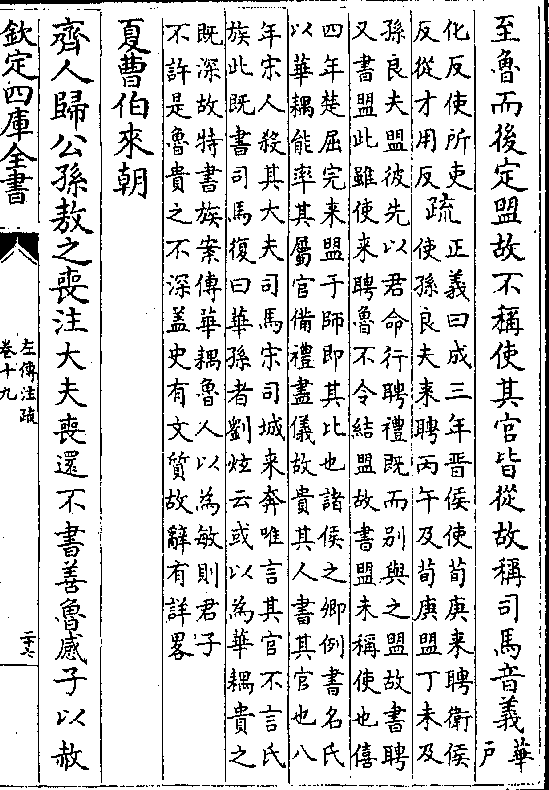 至魯而後定盟故不稱使其官皆從故稱司馬音義華戶
化反使所吏
反從才用反疏正義曰成三年晋侯使荀庚来聘衛侯
使孫良夫来聘丙午及荀庚盟丁未及
孫良夫盟彼先以君命行聘禮既而别與之盟故書聘
又書盟此雖使来聘魯不令結盟故書盟未稱使也僖
四年楚屈完来盟于師即其比也諸侯之卿例書名氏
以華耦能率其屬官備禮盡儀故貴其人書其官也八
年宋人殺其大夫司馬宋司城来奔唯言其官不言氏
族此既書司馬復曰華孫者劉炫云或以為華耦貴之
既深故特書族案傳華耦魯人以為敏則君子
不許是魯貴之不深盖史有文質故辭有詳畧
夏曹伯來朝
齊人歸公孫敖之喪注大夫喪還不書善魯感子以赦
欽定四庫全書
左傳注疏
卷十九
二十七